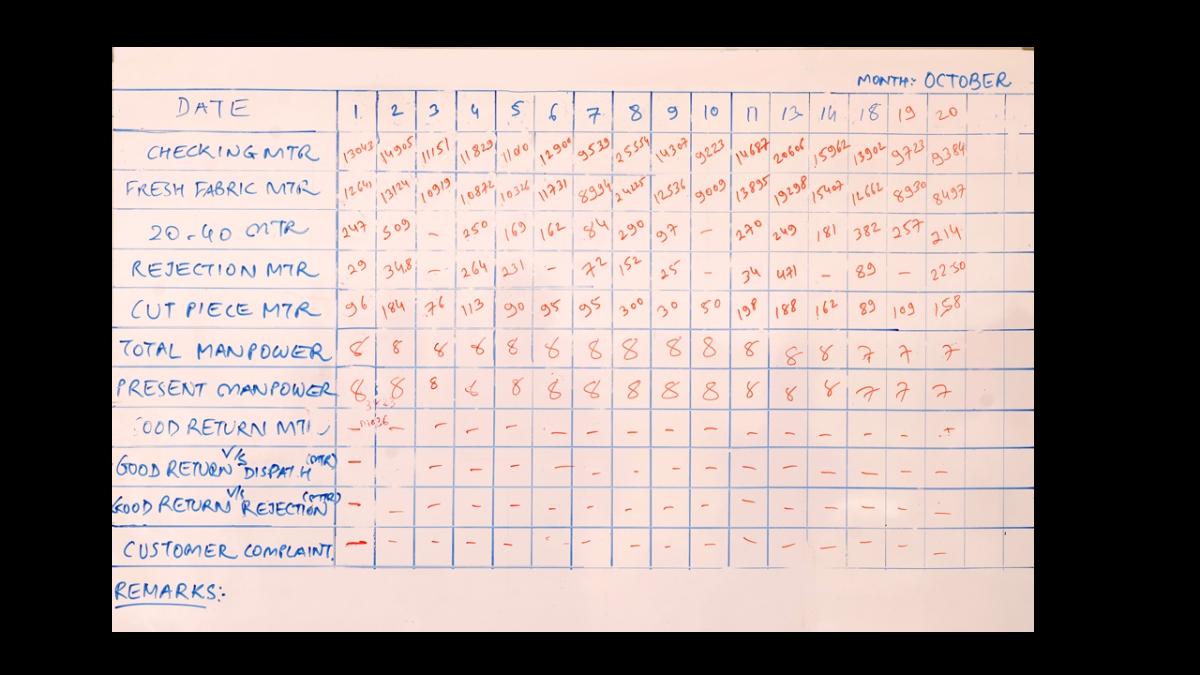 MONTH:- OCTOBER
DATE 1 2 3 4 5 6 7 8 9 10 11 13 14 18 19 20
CHECKING MTR 13043 14905 11151 11829 1100 12900 9539 25554 14307 9223 14687 20606 15962 13902 9723 9384
FRESH FABRIC MTR 12641 13124 10919 10872 10326 11731 8994 24425 12536 9009 13895 19298 15407 12662 8930 8497
20-40 MTR 247 509 - 250 169 162 84 290 97 - 270 249 181 382 257 214
REJECTION MTR 29 348 - 264 231 - 72 152 25 - 34 471 - 89 - 22.50
CUT PIECE MTR 96 184 76 113 90 95 95 300 30 50 198 188 162 89 109 158
TOTAL MANPOWER 8 8 8 8 8 8 8 8 8 8 8 8 8 7 7 7
PRESENT MANPOWER 8 8 8 8 8 8 8 8 8 8 8 8 8 7 7 7
OOD RETURN - - - - - - - - - - - - - - -
GOOD RETURN V/S DISPAT.H (MTR) - - - - - - - - - - - - - - -
GOOD RETURN V/S REJECTION (MTR) - - - - - - - - - - - - - - - -
CUSTOMER COMPLAINT. - - - - - - - - - - - - - - - -
REMARKS:-